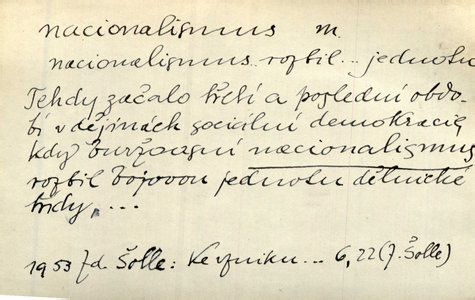 nacionalismus m.
nacionalismus rozbil... jednotu
Tehdy začalo třetí a poslední obdo-
bí v dějinách sociální demokracie,
kdy buržoasní nacionalismus
rozbil bojovou jednotu dělnické
třídy, ...
1953 Zd. Šolle: K vzniku... 6,22 (Z. Šolle)